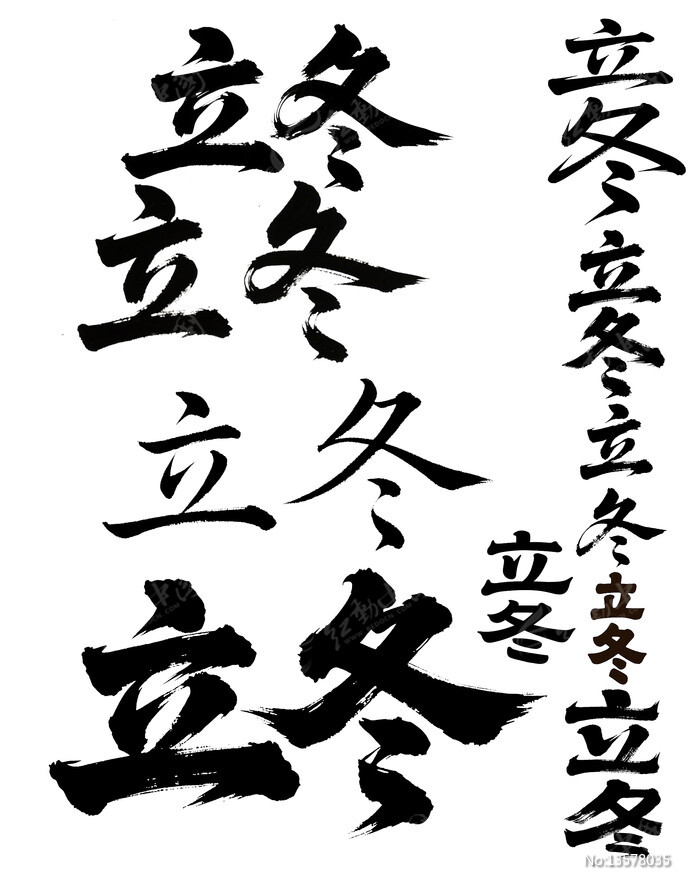 立冬
立冬
立冬
立冬
立冬
立冬
立冬
立冬
立冬
立冬
No:13578035